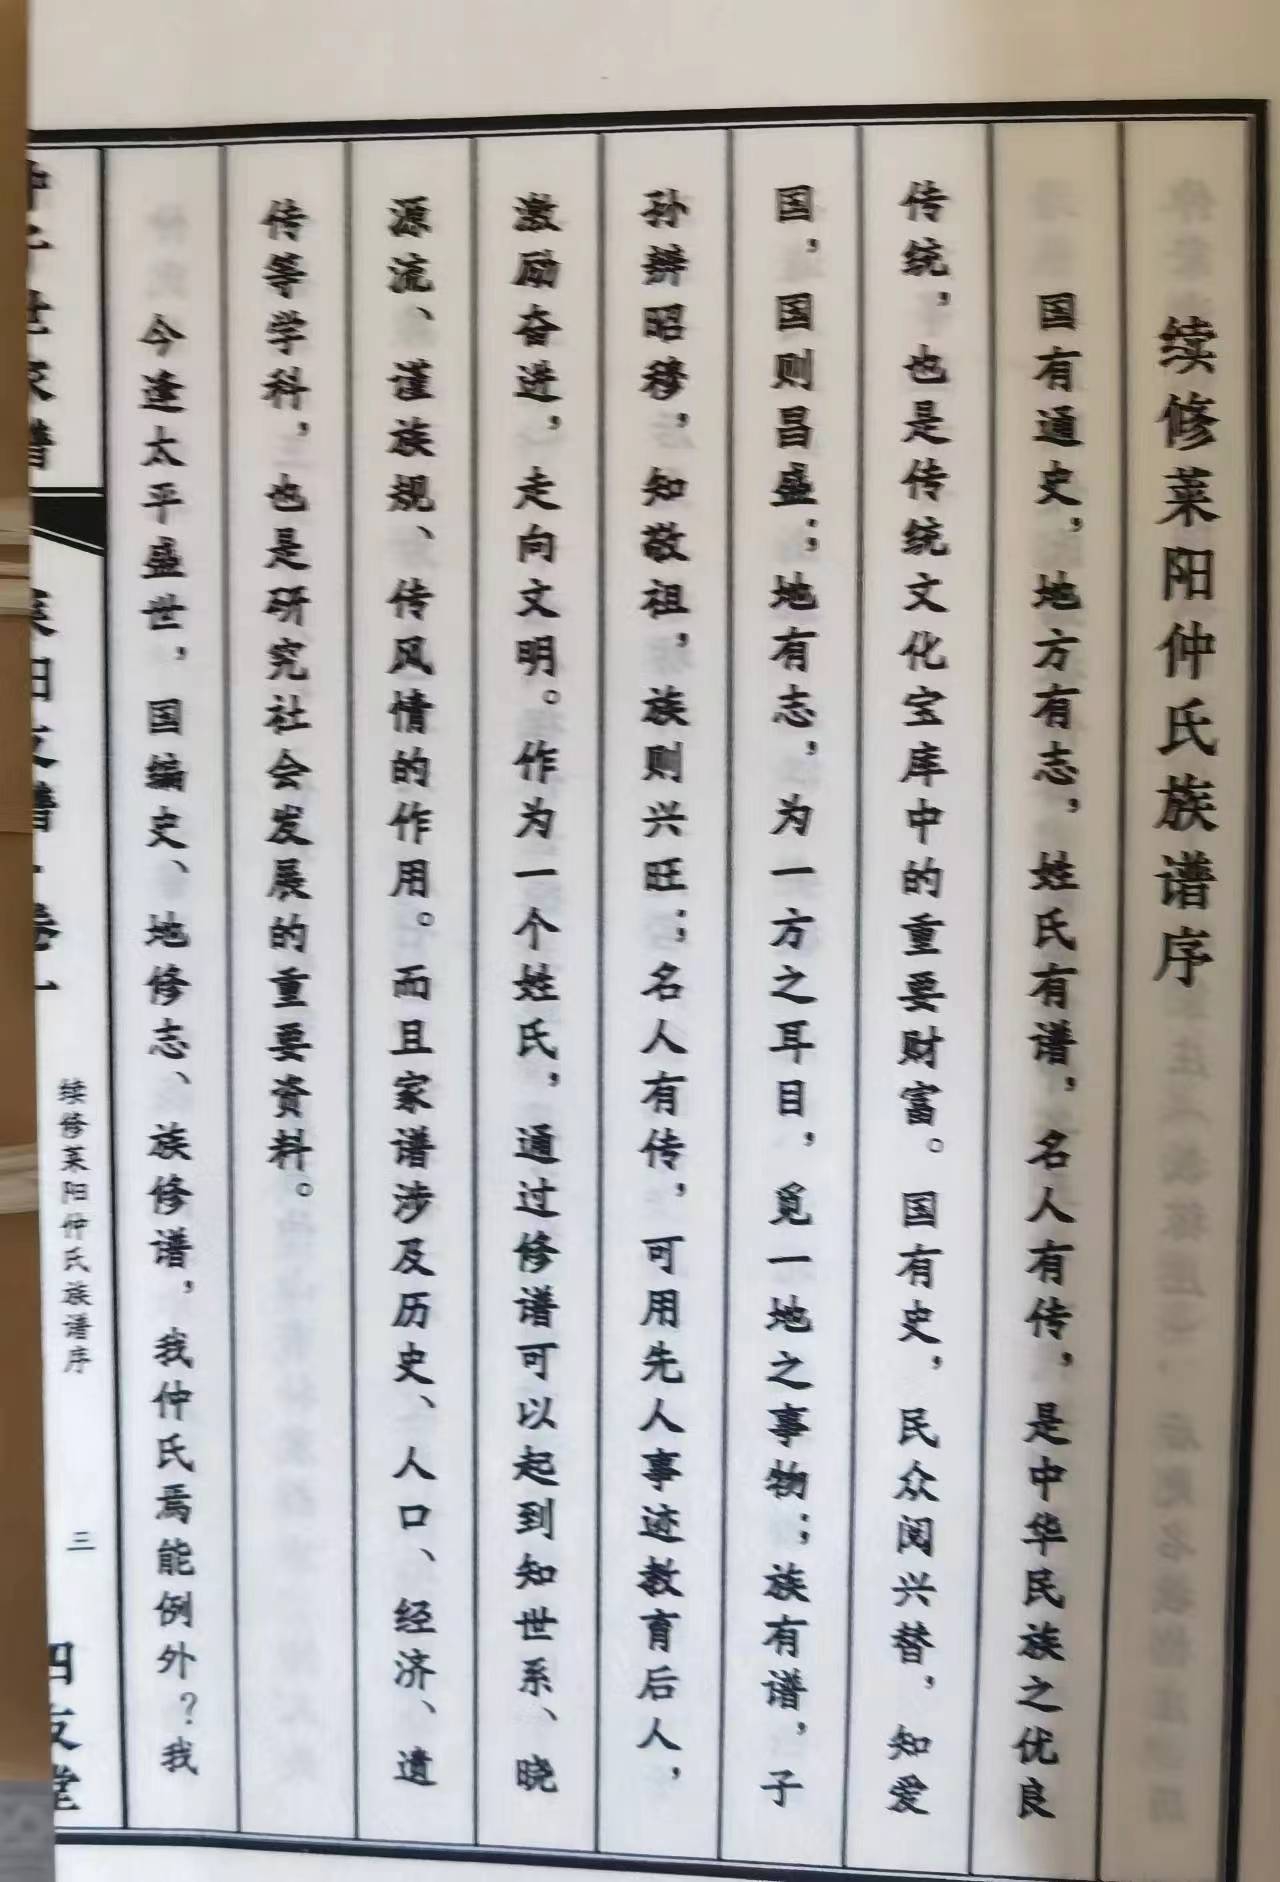 续修莱阳仲氏族谱序
国有通史，地方有志，姓氏有谱，名人有传，是中华民族之优良
传统，也是传统文化宝库中的重要财富。国有史，民众阅兴替，知爱
国，国则昌盛；地有志，为一方之耳目，觅一地之事物；族有谱，子
孙辨昭穆，知敬祖，族则兴旺；名人有传，可用先人事迹教育后人，
激励奋进，走向文明。作为一个姓氏，通过修谱可以起到知世系、晓
源流、谨族规、传风情的作用。而且家谱涉及历史、人口、经济、遗
传等学科，也是研究社会发展的重要资料。
今逢太平盛世，国编史、地修志、族修谱，我仲氏焉能例外？我
世家谱
阳支谱·卷一
续修莱阳仲氏族谱序
三
四友堂